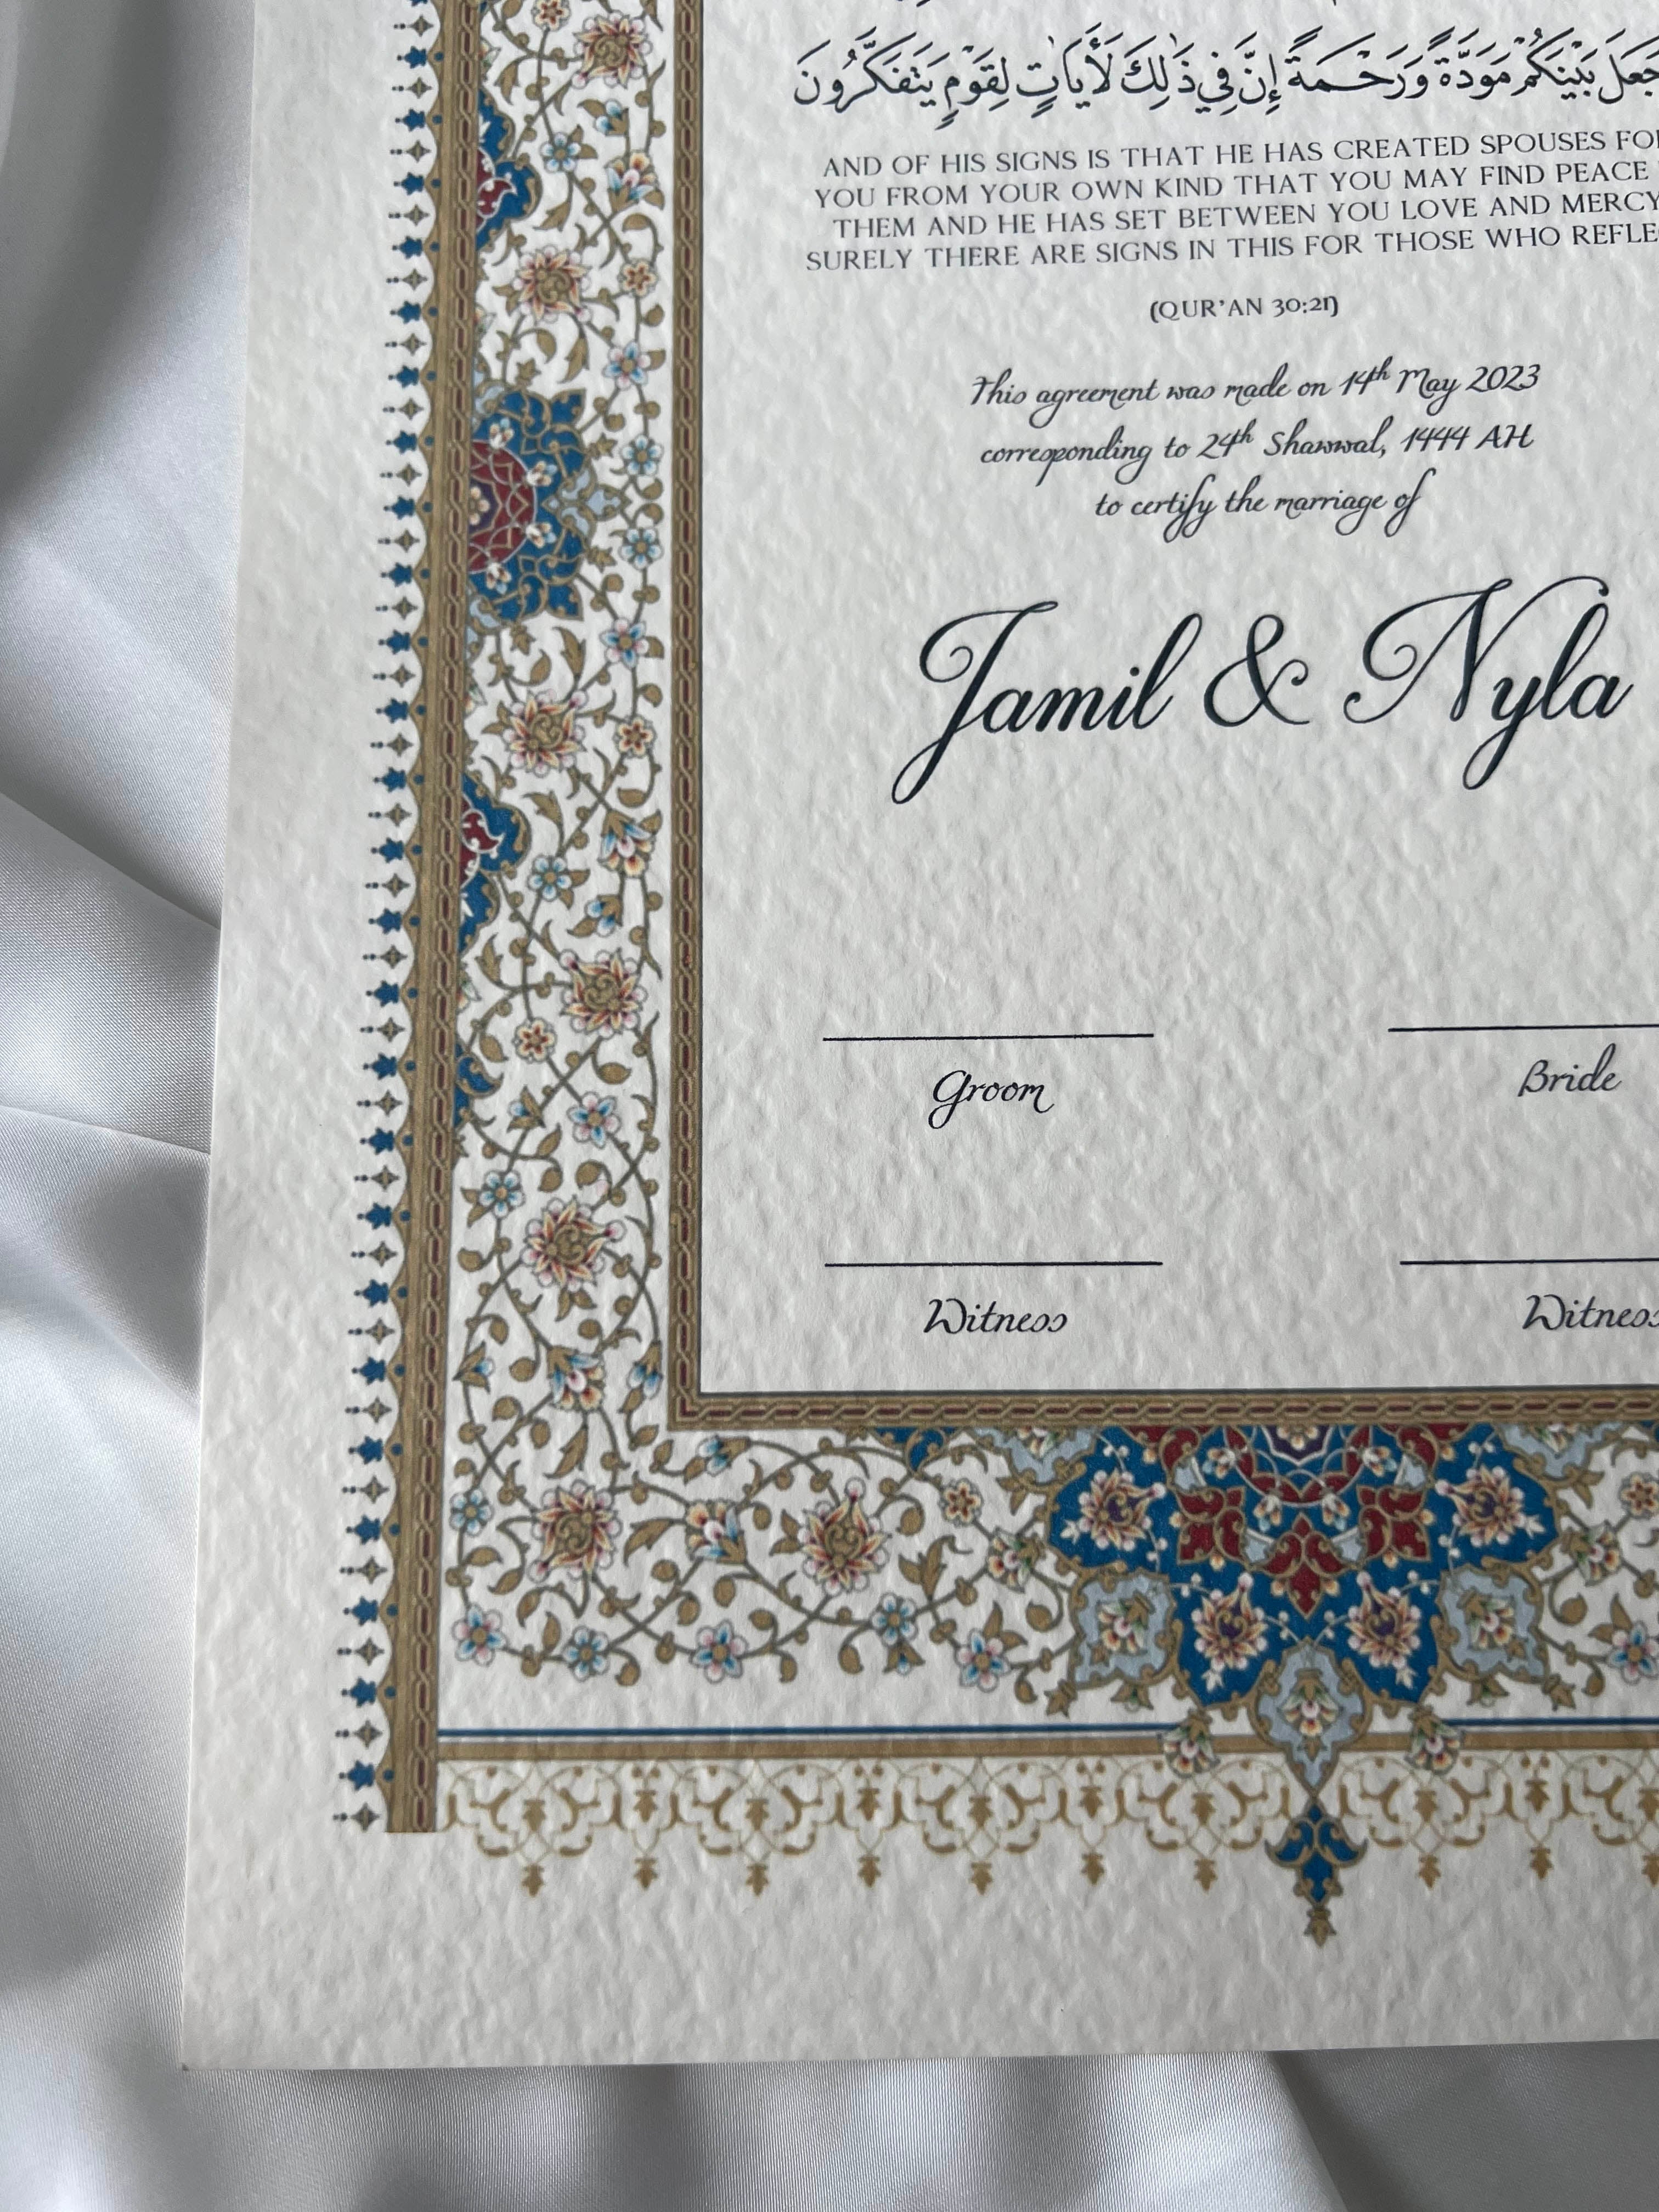 جَعَلَ بَيْنَكُم مَّوَدَّةً وَرَحْمَةً إِنَّ فِي ذَٰلِكَ لَأَيَاتٍ لِقَوْمٍ يَتَفَكَّرُونَ
AND OF HIS SIGNS IS THAT HE HAS CREATED SPOUSES FO
YOU FROM YOUR OWN KIND THAT YOU MAY FIND PEACE
THEM AND HE HAS SET BETWEEN YOU LOVE AND MERCY
SURELY THERE ARE SIGNS IN THIS FOR THOSE WHO REFLE
(QUR'AN 30:21)
This agreement was made on 14th May 2023
corresponding to 24th Shawwal, 1444 AH
to certify the marriage of
Jamil & Nyla
Groom Bride
Witness Witness